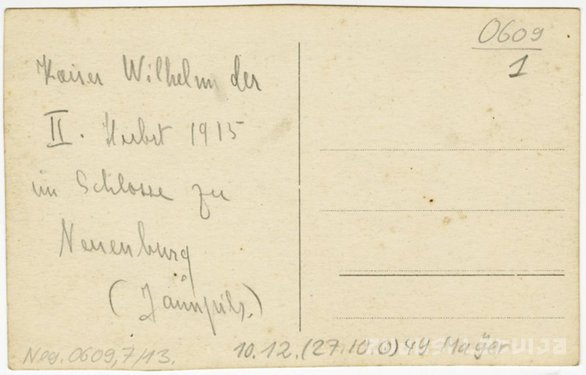 Kaiser Wilhelm der
II. Herbst 1915
im Schlosse zu
Neuenburg
(Jaunpils.)
0609
1
Neg. 0609,7/13.
10.12.(27.10.0)44 Mayer